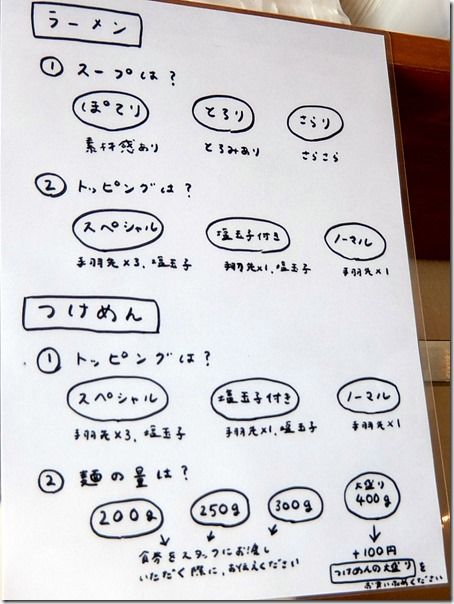 ラーメン
① スープは？
ぽてり とろり さらり
素材感あり とろみあり さらさら
② トッピングは？
スペシャル 塩玉子付き ノーマル
手羽先×3、塩玉子 手羽先×1、塩玉子 手羽先×1
つけめん
① トッピングは？
スペシャル 塩玉子付き ノーマル
手羽先×3、塩玉子 手羽先×1、塩玉子 手羽先×1
② 麺の量は？
200g 250g 300g 大盛り
400g
食券をスタッフにお渡し
いただく際に、お伝えください
+100円
つけめんの大盛り を
お買いもめください